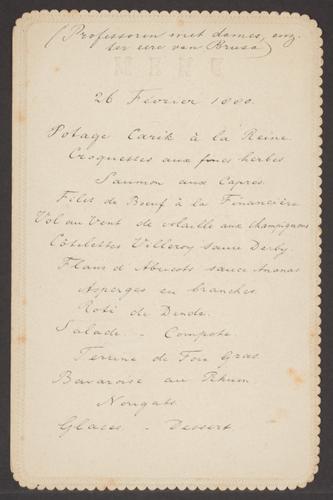 (Professoren met dames, enz.
ter eere van Brusa)
MENU
26 Février 1880.
Potage Carik à la Reine
Croquettes aux fines herbes.
Saumon aux Capres.
Filet de Boeuf à la Financière
Vol au Vent de volaille aux champignons
Côtelettes Villeroy sauce Derby.
Flans d'Abricots sauce Ananas
Asperges en branches.
Roti de Dinde.
Salade - Compote.
Terrine de Foie Gras.
Bavaroise au Rhum.
Nougats.
Glaces - Dessert